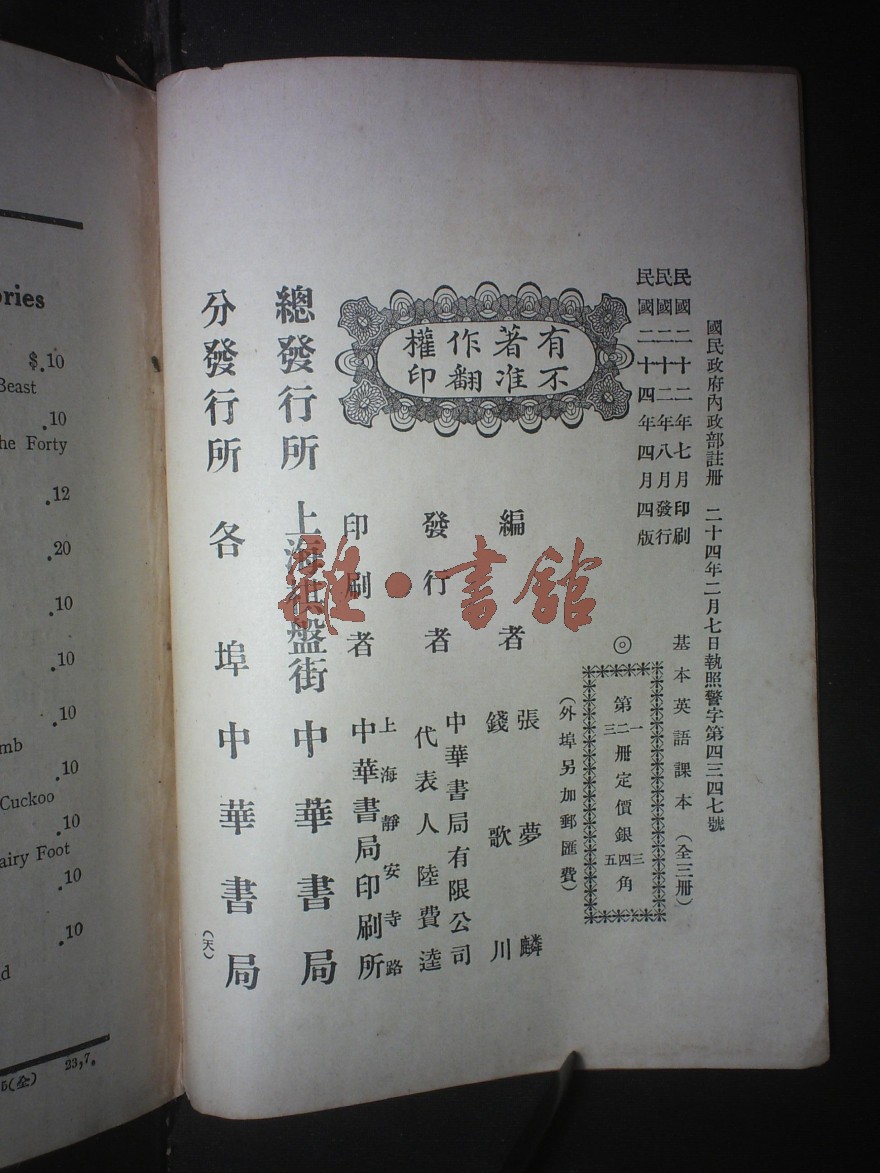 國民政府內政部註冊 二十四年二月七日執照警字第四三四七號
民國二十二年七月印刷
民國二十二年八月發行
民國二十四年四月四版
基本英語課本(全三冊)
◎
第一二三冊定價銀三四五角
(外埠另加郵匯費)
有著作權
不准翻印
編者 張夢麟
錢歌川
發行者 中華書局有限公司
代表人陸費逵
印刷者 上海靜安寺路
中華書局印刷所
總發行所 上海棋盤街 中華書局
分發行所 各埠中華書局
(天)
雜·書館
ories
$.10
Beast
.10
he Forty
.12
.20
.10
.10
.10
mb
.10
Cuckoo
.10
airy Foot
.10
.10
d
5(全) 23,7.